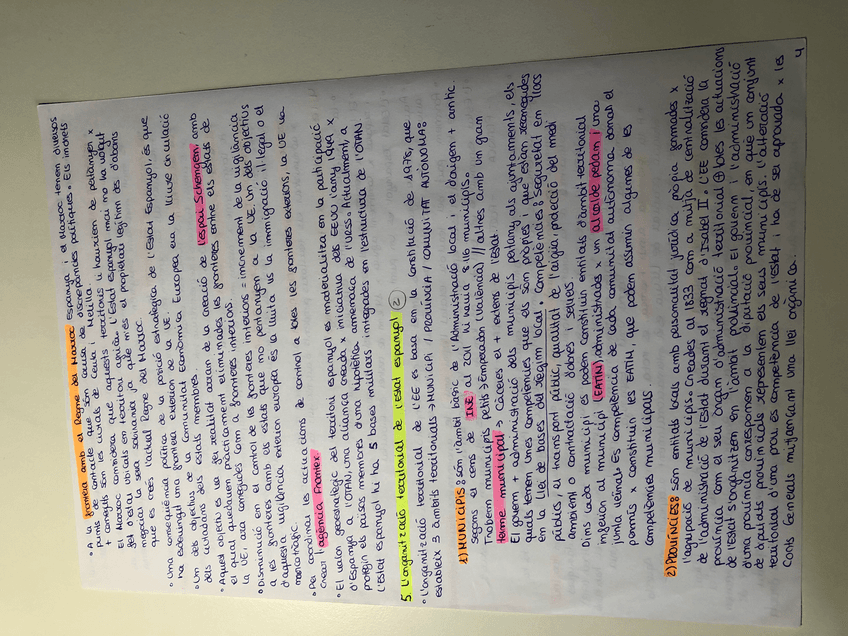 • A la frontera amb el Regne del Marroc Espanya i el Marroc tenen diversos
punts de contacte que són causa de discrepàncies polítiques. Els indrets
+ coneguts són les ciutats de Ceuta i Melilla.
El Marroc considera que aquests territoris li haurien de pertànyer x
fet d'estar ubicats en territori africà. L'Estat espanyol mai no ha volgut
negociar la seva sobirania ja que n'és el propietari legítim des d'abans
que es creés l'actual Regne del Marroc.
• Una conseqüència política de la posició estratègica de l'Estat Espanyol, és que
ha esdevingut una frontera exterior de la UE.
• Un dels objectius de la Comunitat Econòmica Europea era la lliure circulació
dels ciutadans dels estats membres.
• Aquest objectiu es va fer realitat arran de la creació de l'espai Schengen, amb
el qual quedaven pràcticament eliminades les fronteres entre els estats de
la UE, ara conegudes com a fronteres interiors.
• Disminució en el control de les fronteres interiors = increment de la vigilància
a les fronteres amb els estats que no pertanyen a la UE. Un dels objectius
d'aquesta vigilància exterior europea és la lluita vs la immigració il·legal o el
narcotràfic.
• Per coordinar les actuacions de control a totes les fronteres exteriors, la UE va
crear l'agència Frontex.
• El valor geoestratègic del territori espanyol es materialitza en la participació
d'Espanya a l'OTAN, una aliança creada x iniciativa dels EEUU l'any 1949 x
protegir els països membres d'una hipotètica amenaça de l'URSS. Actualment, a
l'Estat espanyol hi ha 5 bases militars integrades en l'estructura de l'OTAN
5. L'organització territorial de l'Estat espanyol 2
• L'organització territorial de l'EE es basa en la Constitució de 1978, que
estableix 3 àmbits territorials → MUNICIPI / PROVÍNCIA / COMUNITAT AUTÒNOMA:
1) MUNICIPIS: són l'àmbit bàsic de l'Administració local i el d'origen + antic.
Segons el cens de INE al 2011 hi havia 8.116 municipis.
Trobem municipis petits → Emperador (València) // altres amb un gran
terme municipal → Càceres el + extens de l'estat.
El govern + administració dels municipis pertany als ajuntaments, els
quals tenen unes competències que els són pròpies i que estan reconegudes
en la Llei de bases del règim local. Competències: Seguretat en llocs
públics, el transport públic, qualitat de l'aigua, protecció del medi
ambient o contractació d'obres i serveis
Dins cada municipi es poden constituir entitats d'àmbit territorial
inferior al municipi EATIM, administrades x un alcalde pedani i una
junta veïnal. És competència de cada comunitat autònoma donar el
permís x constituir les EATIM, que poden assumir algunes de les
competències municipals.
2) PROVÍNCIES: són entitats locals amb personalitat jurídica pròpia formades x
l'agrupació de municipis. Creades al 1833 com a mitjà de centralització
de l'administració de l'estat durant el regnat d'Isabel II. L'EE considera la
província com el seu òrgan d'administració territorial ⊕ totes les actuacions
de l'estat s'organitzen en l'àmbit provincial. El govern i l'administració
d'una província corresponen a la diputació provincial, en què un conjunt
de diputats provincials representen els seus municipis. L'alteració
territorial d'una prov. és competència de l'estat i ha de ser aprovada x les
Corts Generals mitjançant una llei orgànica.
4